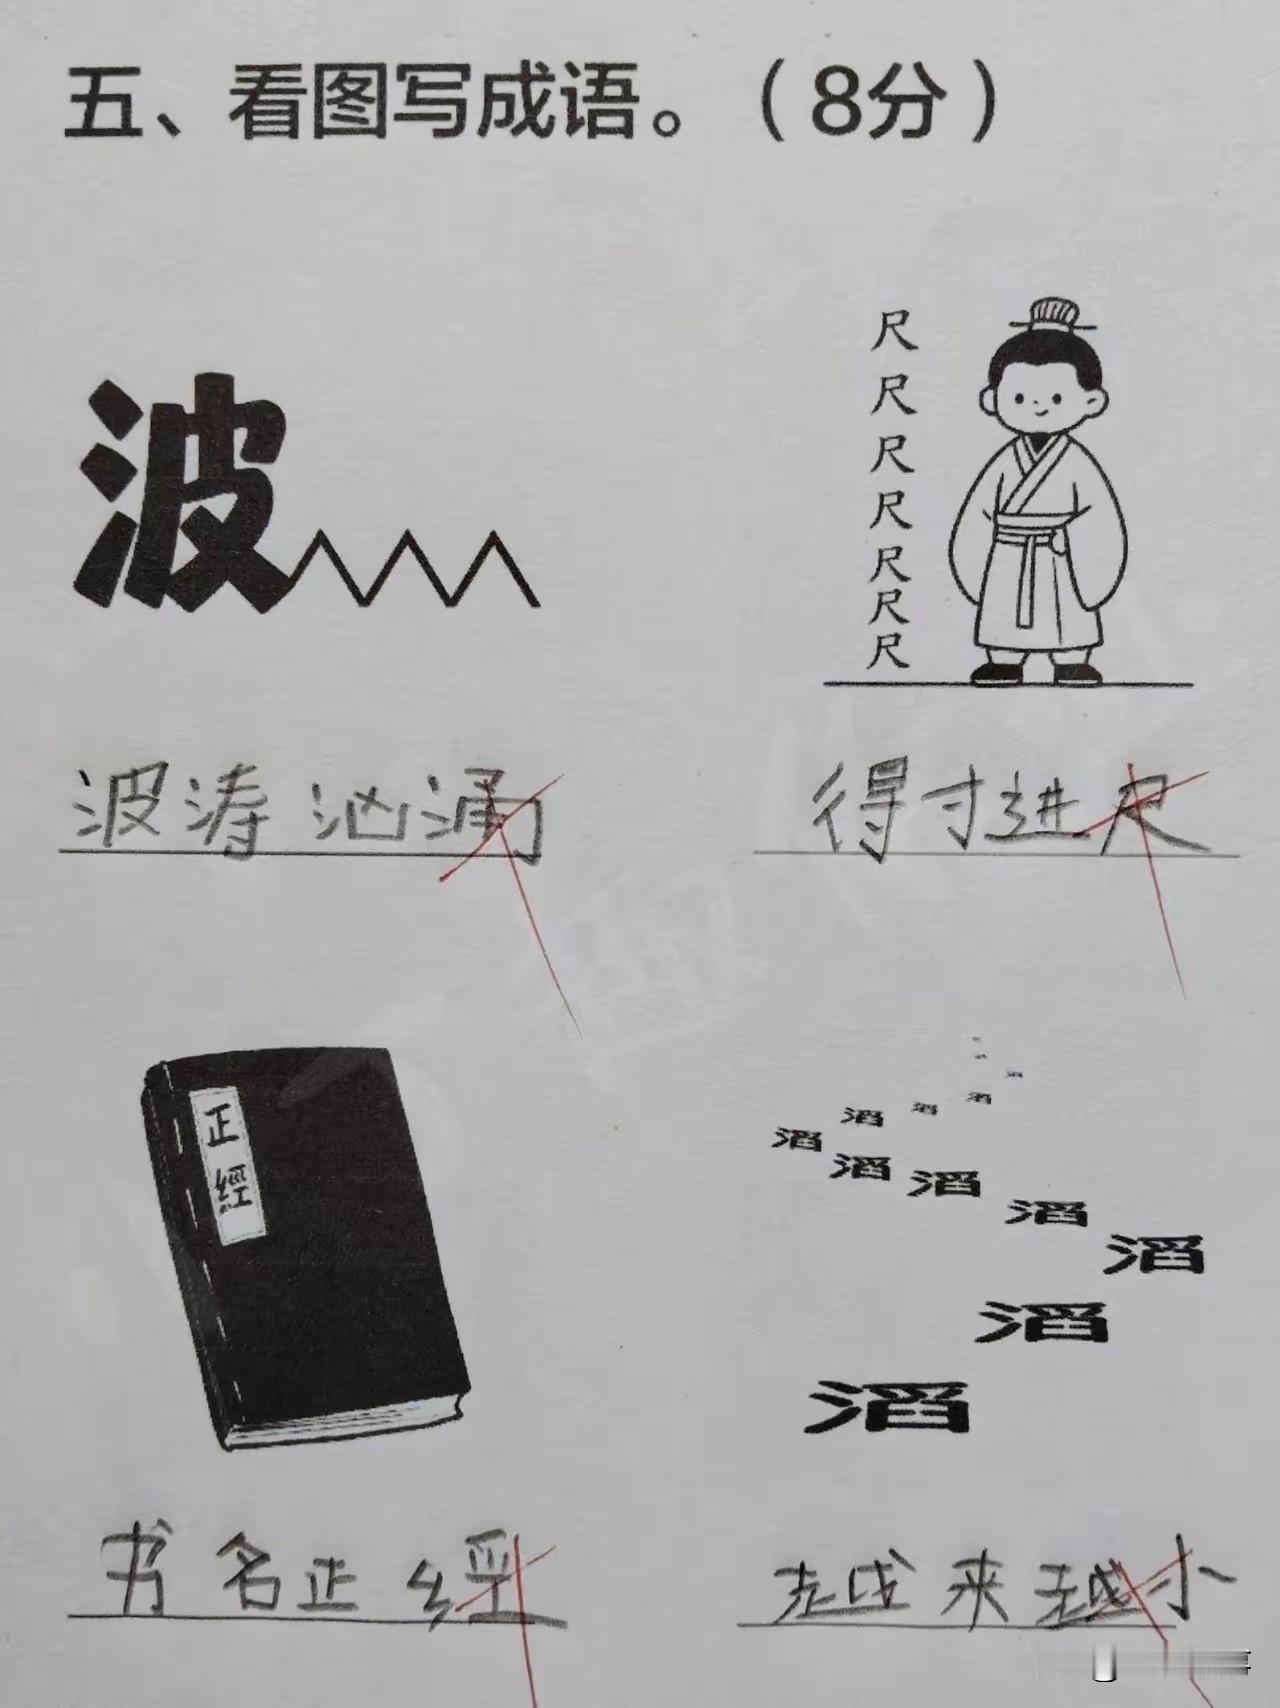 五、看图写成语。（8分）
波
尺
尺
尺
尺
尺
尺
尺
波涛汹涌
得寸进尺
正經
滔
滔
滔
滔
滔
滔
滔
滔
滔
滔
滔
书名正經
越来越小